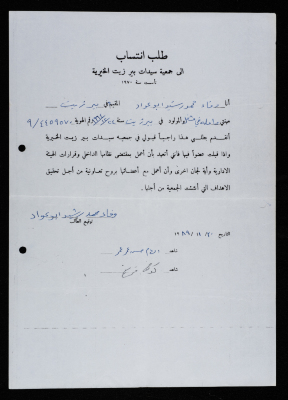 طلب انتساب
الى جمعية سيدات بير زيت الخيرية
تأسست سنة ١٩٢٠
أنا وفاء محمد رشيد ابو عواد المقيم في بير زيت
مهنتي والمولود في بير زيت سنة رقم الهوية ٩/٤٤٥٩٥٧٠
أتقدم بطلبي هذا راجياً قبولي في جمعية سيدات بير زيت الخيرية
واذا قبلت عضواً فيها فاني أتعهد بأن أعمل بمقتضى نظامها الداخلي وقرارات الهيئة
الادارية وأية لجان اخرى وأن أعمل مع أعضائها بروح تعاونية من أجل تحقيق
الاهداف التي أنشئت الجمعية من أجلها .
وفاء محمد رشيد ابو عواد
توقيع الطالب
التاريخ ٢٠ / ١١ / ١٩٨٩
شاهد
شاهد